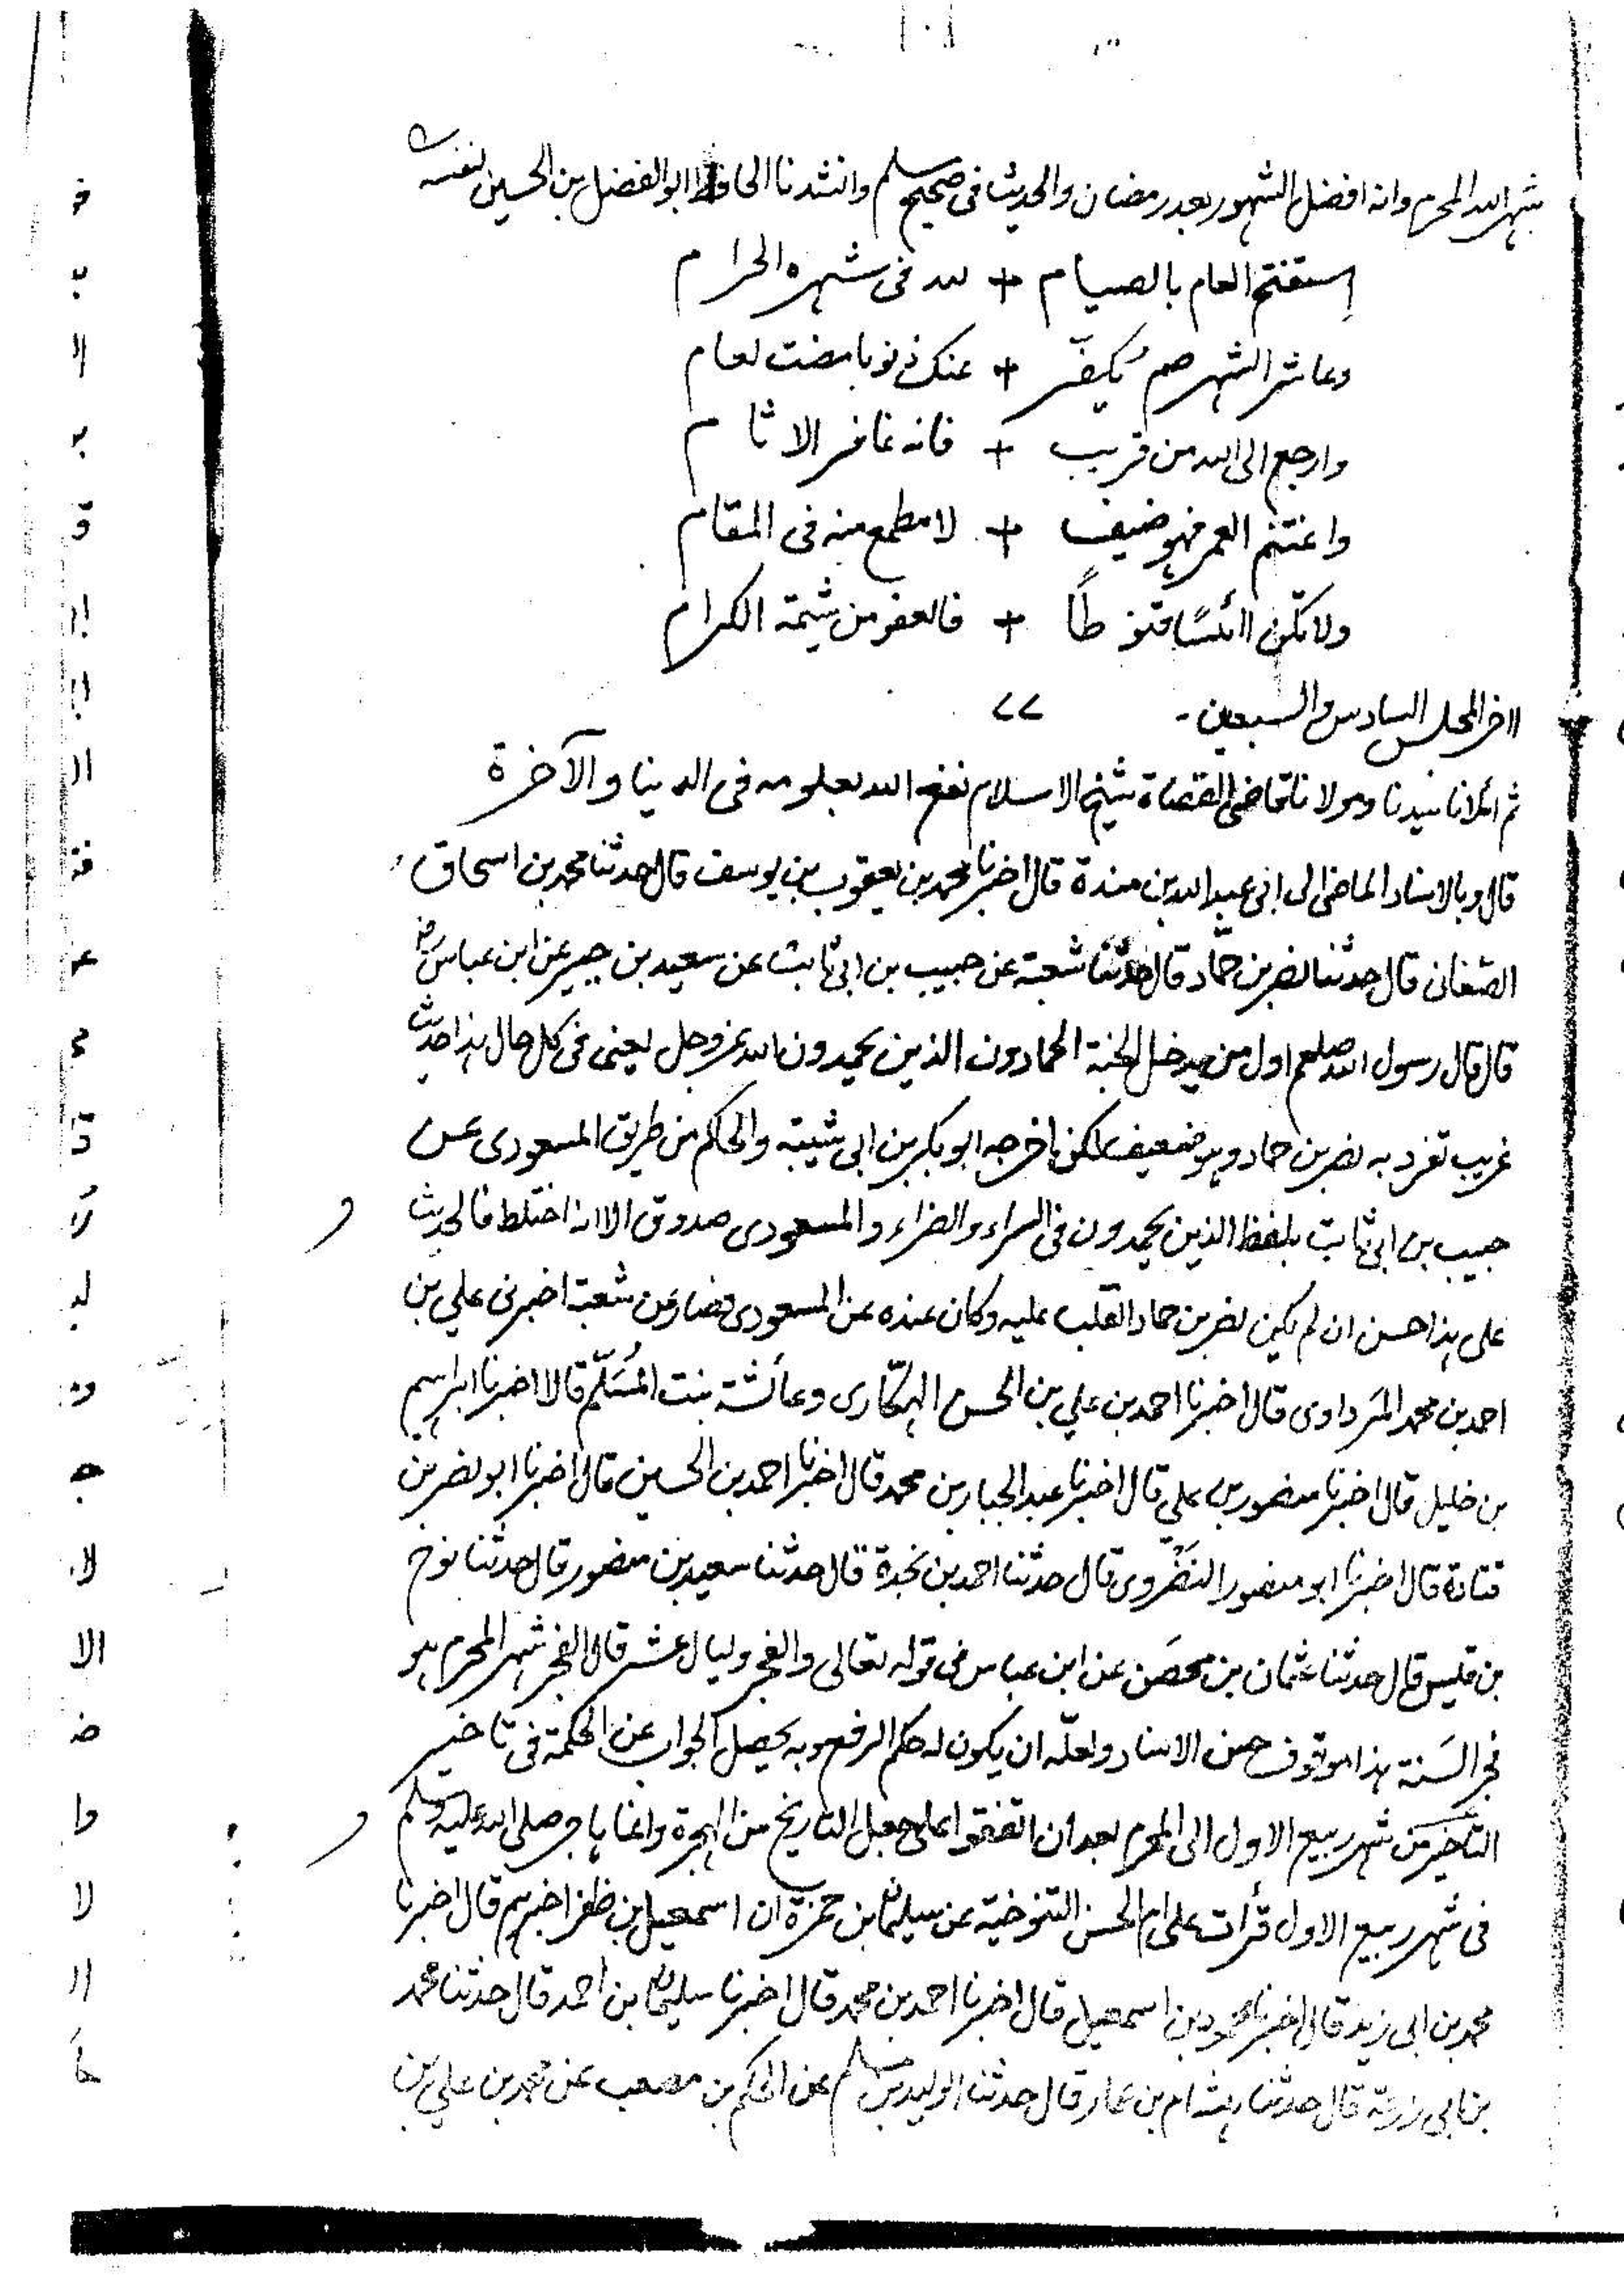 ١٠١
شهر الله المحرم وانه افضل الشهور بعد رمضان والحديث فى صحيح مسلم وانشدنا الحافظ ابو الفضل بن الحسين لنفسه
استفتح العام بالصيام + لله فى شهره الحرام
وعاشر الشهر صم يُكفّر + عنك ذنوبا مضت لعام
وارجع الى الله من قريب + فانه غافر الاثام
واغتنم العمر فهو ضيف + لا مطمع منه فى المقام
ولا تكن اائسًا قنوطًا + فالعفو من شيمة الكرام
ااخر المجلس السادس والسبعين - ٧٧
ثم املانا سيدنا ومولانا قاضى القضاة شيخ الاسلام نفع الله بعلومه فى الدنيا والآخرة
قال وبالاسناد الماضى الى ابى عبد الله بن مندة قال اخبرنا محمد بن يعقوب بن يوسف قال حدثنا محمد بن اسحاق
الصغانى قال حدثنا نصر بن حمّاد قال حدثنا شعبة عن حبيب بن ابى ثابت عن سعيد بن جبير عن ابن عباس رض
قال قال رسول الله صلعم اول من يدخل الجنة الحمادون الذين يحمدون الله عز وجل يعنى فى كل حال هذا حديث
غريب تفرد به نصر بن حماد وهو ضعيف لكن اخرجه ابو بكر بن ابى شيبة والحاكم من طريق المسعودى عن
حبيب بن ابى ثابت بلفظ الذين يحمدون فى السراء والضراء والمسعودى صدوق الا انه اختلط فالحديث
على هذا حسن ان لم يكن نصر بن حماد انقلب عليه وكان عنده عن المسعودى فصار عن شعبة اخبرنى علي بن
احمد بن محمد المرداوى قال اخبرنا احمد بن علي بن الحسن الهكّارى وعائشة بنت المُسَلّم قالا اخبرنا ابراهيم
بن خليل قال اخبرنا منصور بن على قال اخبرنا عبد الجبار بن محمد قال اخبرنا احمد بن الحسين قال اخبرنا ابو نصر بن
قتادة قال اخبرنا ابو منصور النَضْروى قال حدثنا احمد بن نجدة قال حدثنا سعيد بن منصور قال حدثنا نوح
بن قيس قال حدثنا عثمان بن محصَن عن ابن عباس فى قوله تعالى والفجر وليال عشر قال الفجر شهر المحرم هو
فجر السَنة هذا موقوف حسن الاسناد ولعلّه ان يكون له حكم الرفع وبه يحصل الجواب عن الحكمة فى تاخير
التاخير من شهر ربيع الاول الى المحرم بعد ان اتفقوا على جعل التاريخ من الهجرة وانما هاجر صلى الله عليه وسلم
فى شهر ربيع الاول قرأت على ام الحسن التنوخية عن سليمان بن حمزة ان اسمعيل بن ظفر اخبرهم قال اخبرنا
محمد بن ابى زيد قال اخبرنا محمود بن اسمعيل قال اخبرنا احمد بن محمد قال اخبرنا سليمان بن احمد قال حدثنا محمد
بن ابى زرعة قال حدثنا هشام بن عمار قال حدثنا الوليد بن مسلم عن الحكم بن مصعب عن محمد بن علي بن